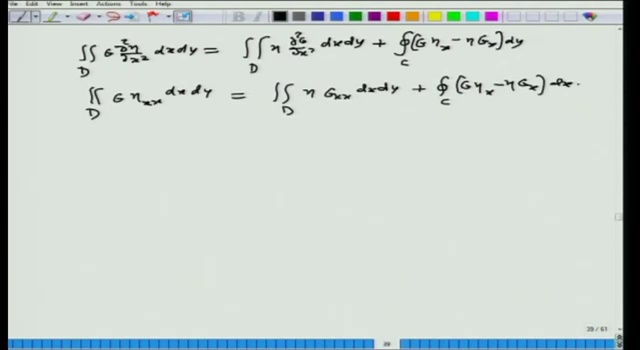 View Insert Actions Tools Help
∬_D G ∂²η/∂x² dxdy = ∬_D η ∂²G/∂x² dxdy + ∮_C (G η_x − η G_x) dy
∬_D G η_xx dxdy = ∬_D η G_xx dxdy + ∮_C (G η_x − η G_x) dx.
39
39 / 61